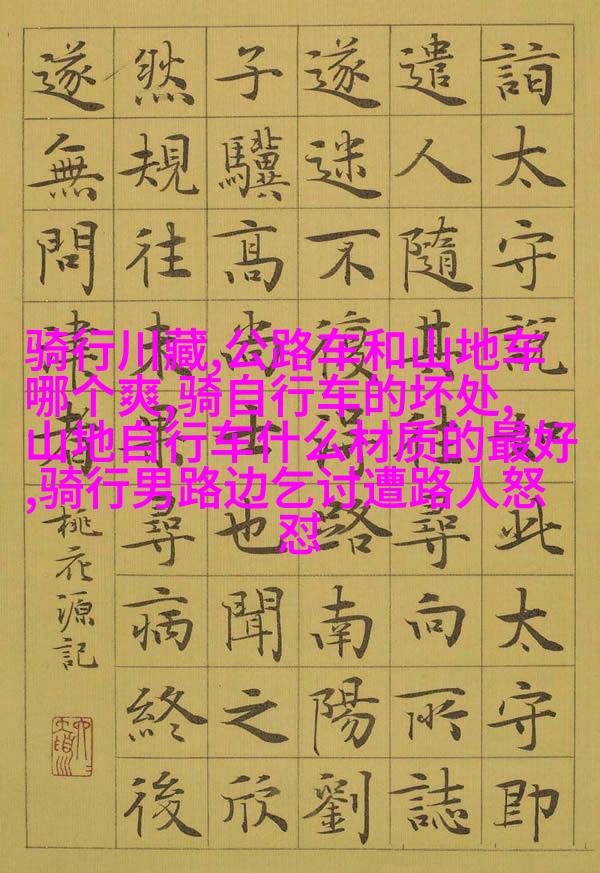 詣太守説如此太守即
遣人隨其往尋向所誌
遂迷不復得路南陽劉
子驥高尚士也聞之欣
然規往未果尋病終後
遂無問津者
桃花源記
骑行川藏,公路车和山地车
哪个爽,骑自行车的坏处,
山地自行车什么材质的最好
,骑行男路边乞讨遭路人怒
怼